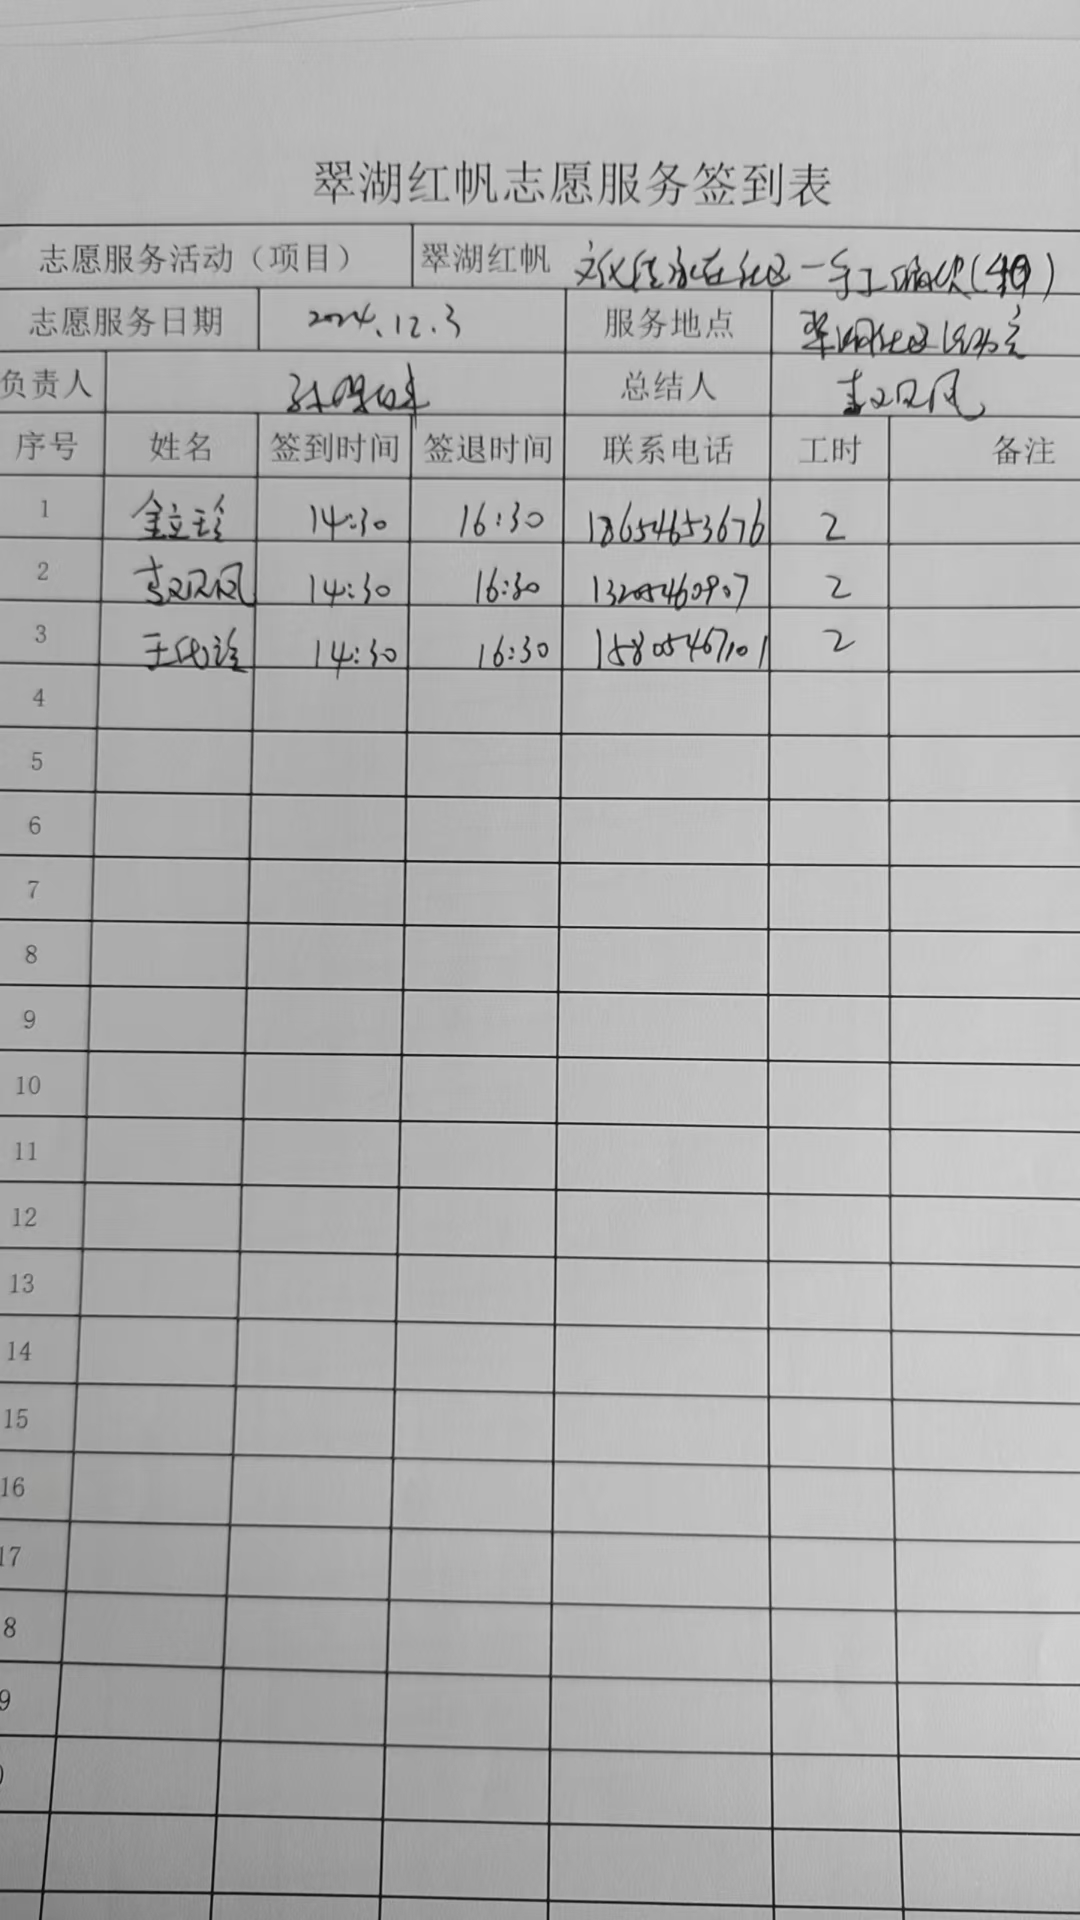 翠湖红帆志愿服务签到表
志愿服务活动（项目） 翠湖红帆 文化传承在社区一手工编织
志愿服务日期 2024.12.3 服务地点 翠湖社区活动室
负责人 总结人 李双凤
序号 姓名 签到时间 签退时间 联系电话 工时 备注
1 金立珍 14:30 16:30 18654653676 2
2 李双凤 14:30 16:30 13205460907 2
3 王 14:30 16:30 15805467101 2
4
5
6
7
8
9
10
11
12
13
14
15
16
17
8
9